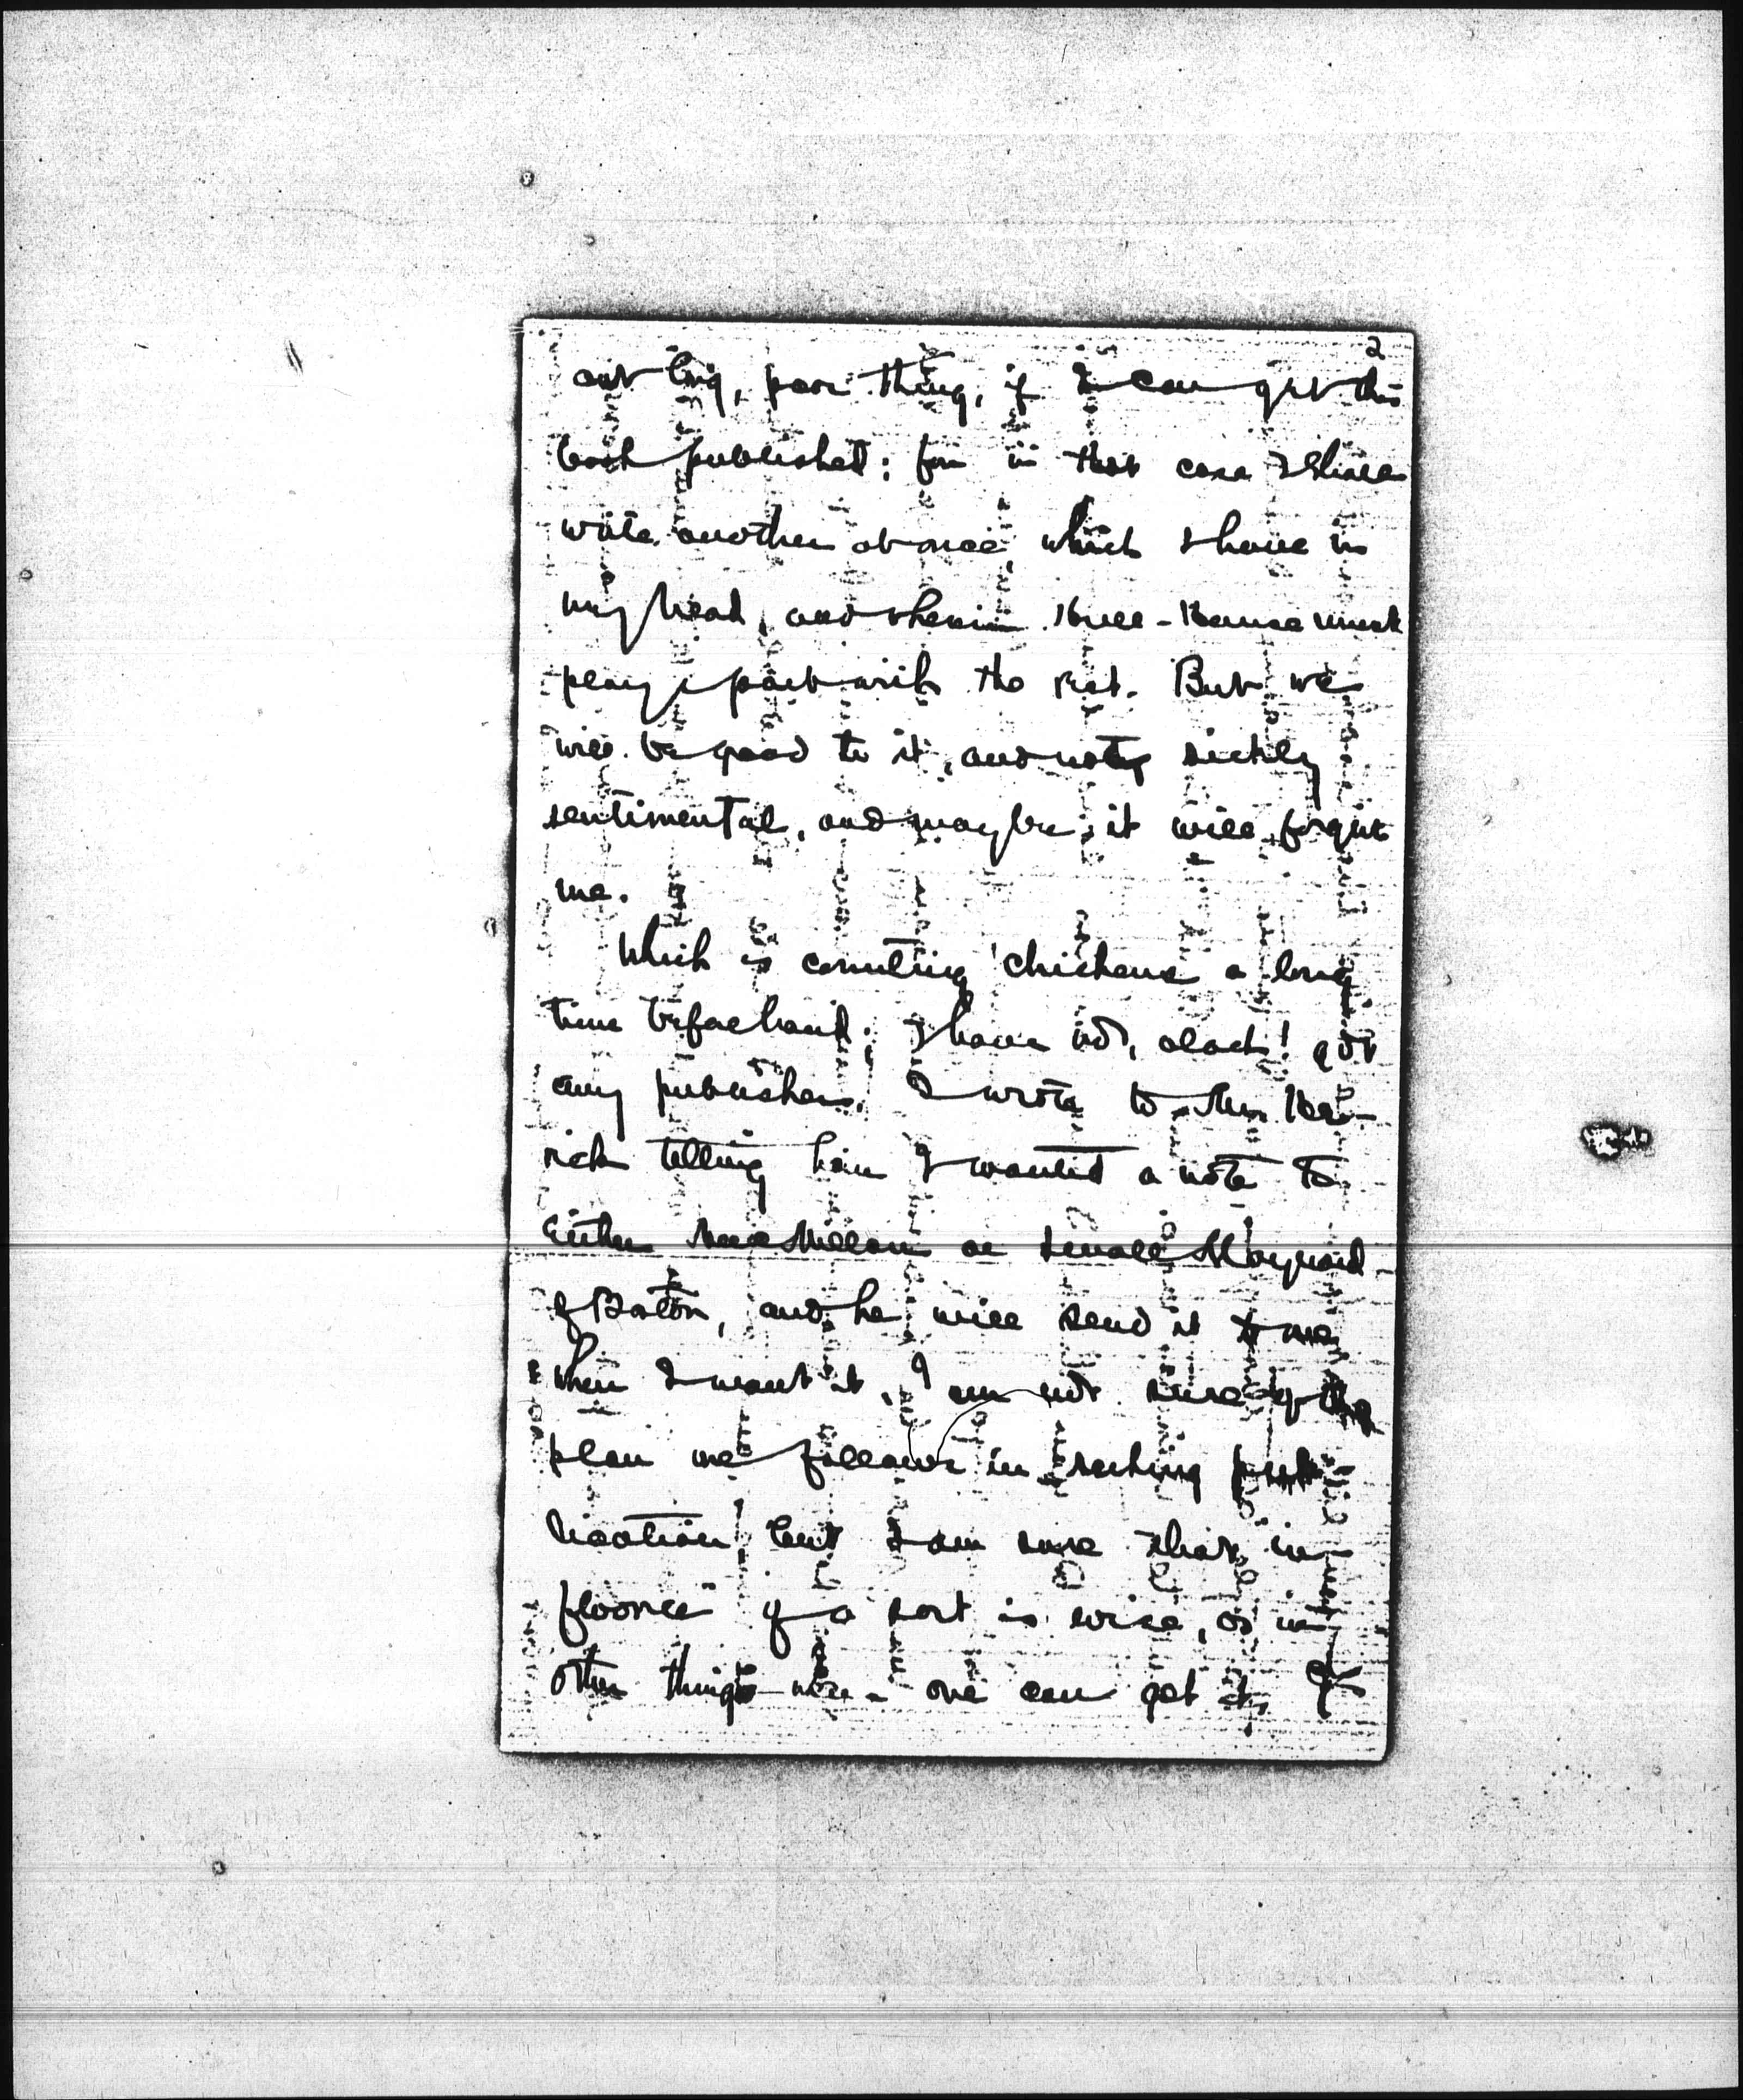 2
out long, poor thing, if I can get this
book published; for in that case I shall
write another at once which I have in
my head, and therein Hull-House must
play a part with the rest. But we
will be good to it, and not sickly
sentimental, and maybe it will forgive
me.
Which is counting chickens a long
time beforehand. I have not, alack! got
any publisher. I wrote to Mr. Her-
rick telling him I wanted a note to
either MacMillan or Small Maynard
of Boston, and he will send it to me
when I want it. I am not sure of the
plan one follows in seeking pub-
lication, but I am sure that in-
fluence of a sort is wise, as in
other things when one can get it. If